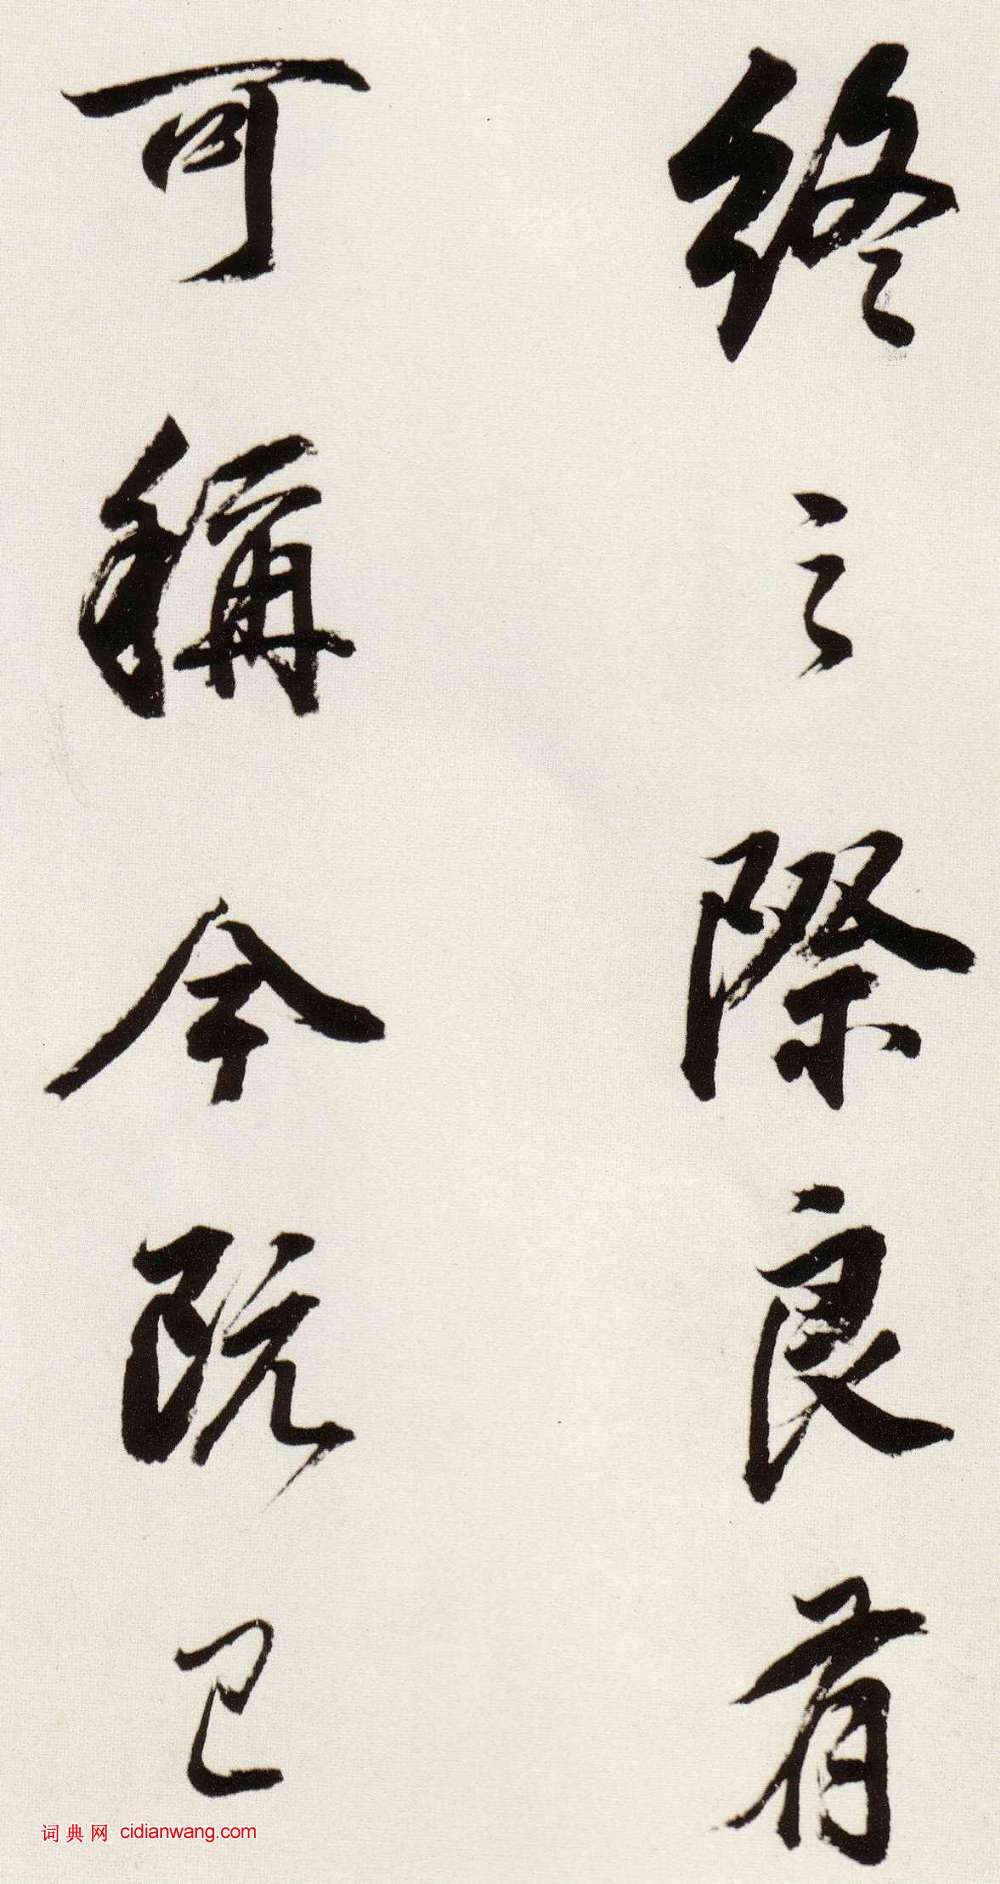 終之際良有
可稱今既已
词典网 cidianwang.com